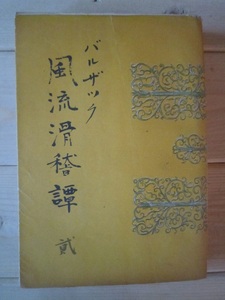 バルザック
風流滑稽譚
貳